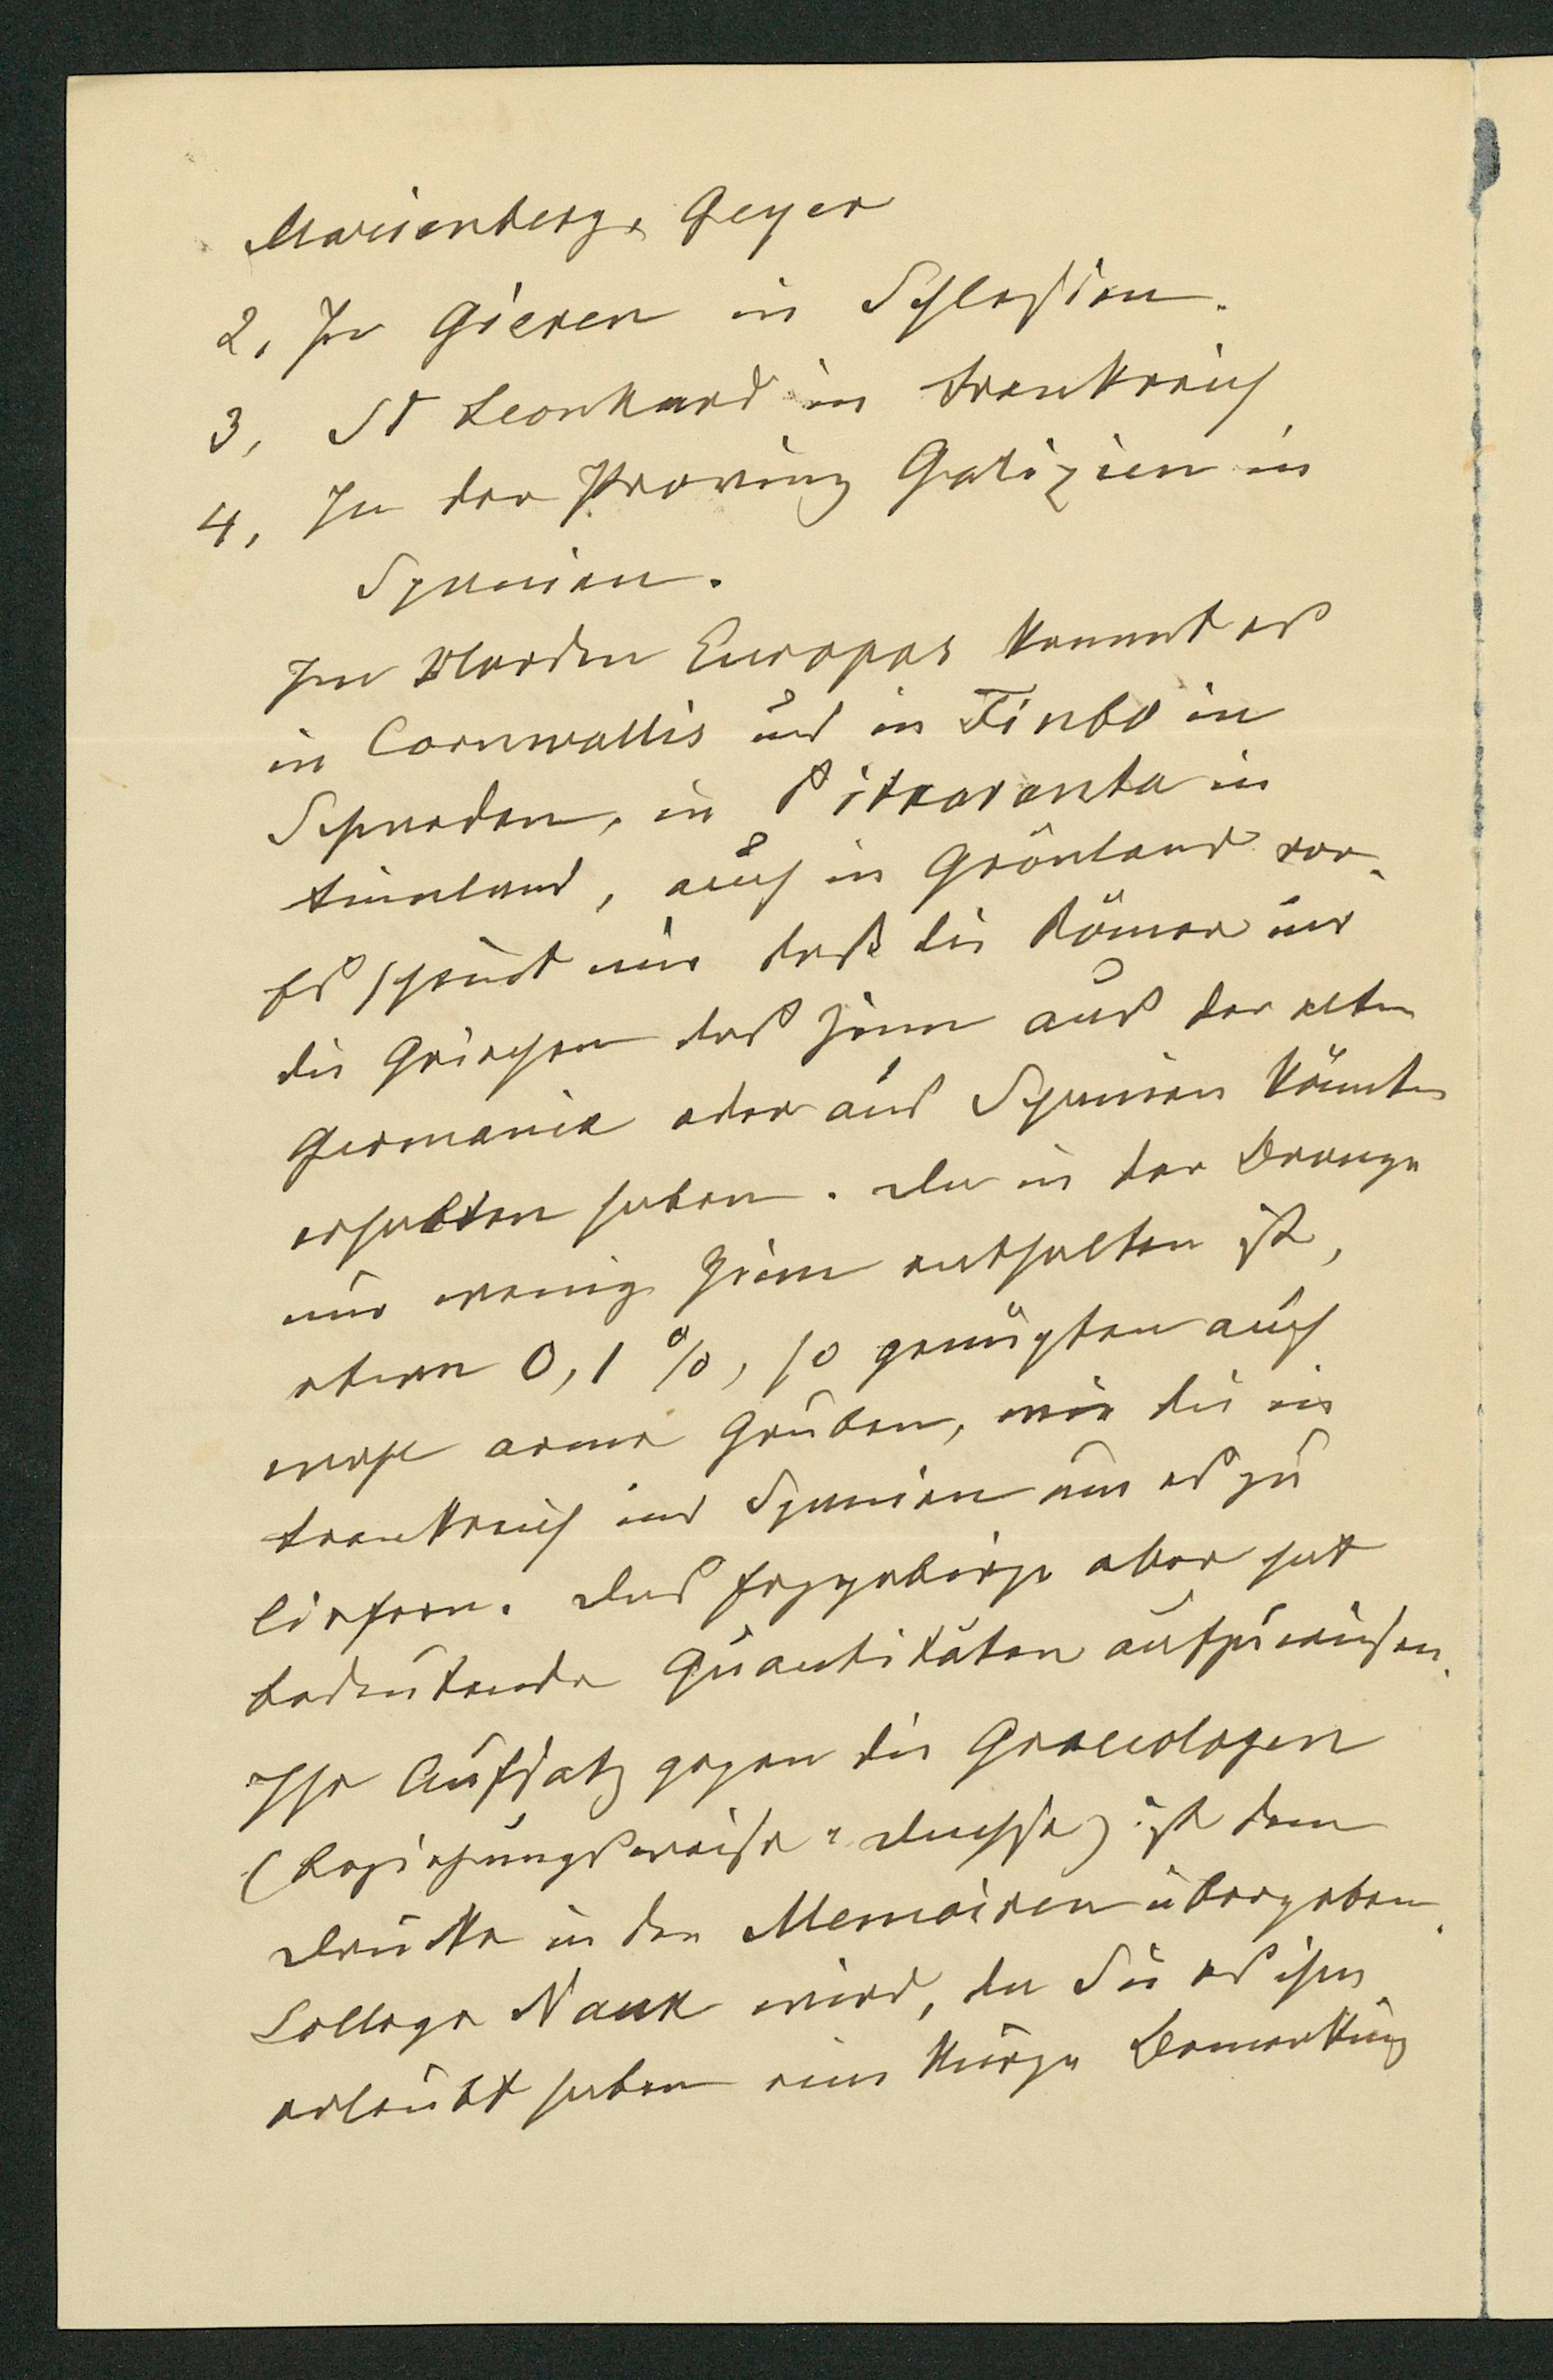 Marienberg, Geyer
2, In Gieren in Schlesien.
3, St Leonhard in Frankreich
4, In der Provinz Galizien in
Spanien.
Im Norden Europas kommt es
in Cornwallis und in Finbo in
Schweden, in Pitkaranta in
Finnland, auch in Grönland vor.
Es scheint mir daß die Römer und
die Griechen das Zinn aus der alten
Germania oder aus Spanien könnten
erhalten haben. Da in der Bronze
nur wenig Zinn enthalten ist,
etwa 0,1 %, so genügten auch
wohl arme Gruben, wie die in
Frankreich und Spanien um es zu
liefern. Das Erzgebirge aber hat
bedeutende Quantitäten aufzuweisen.
Ihr Aufsatz gegen die Graecologen
(beziehungsweise ) ist dem
Drucke in den Memoiren übergeben.
College Nauk wird, da Sie es ihm
erlaubt haben eine kurze Bemerkung